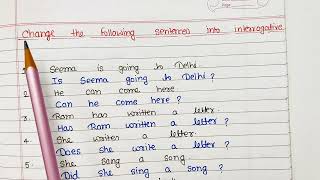 Change the following sentences into interrogative
1. Seema is going to Delhi.
Is Seema going to Delhi ?
2. He can come here.
Can he come here ?
3. Ram has written a letter.
Has Ram written a letter ?
4. She writes a letter.
Does she write a letter ?
5. She sang a song.
Did she sing a song ?